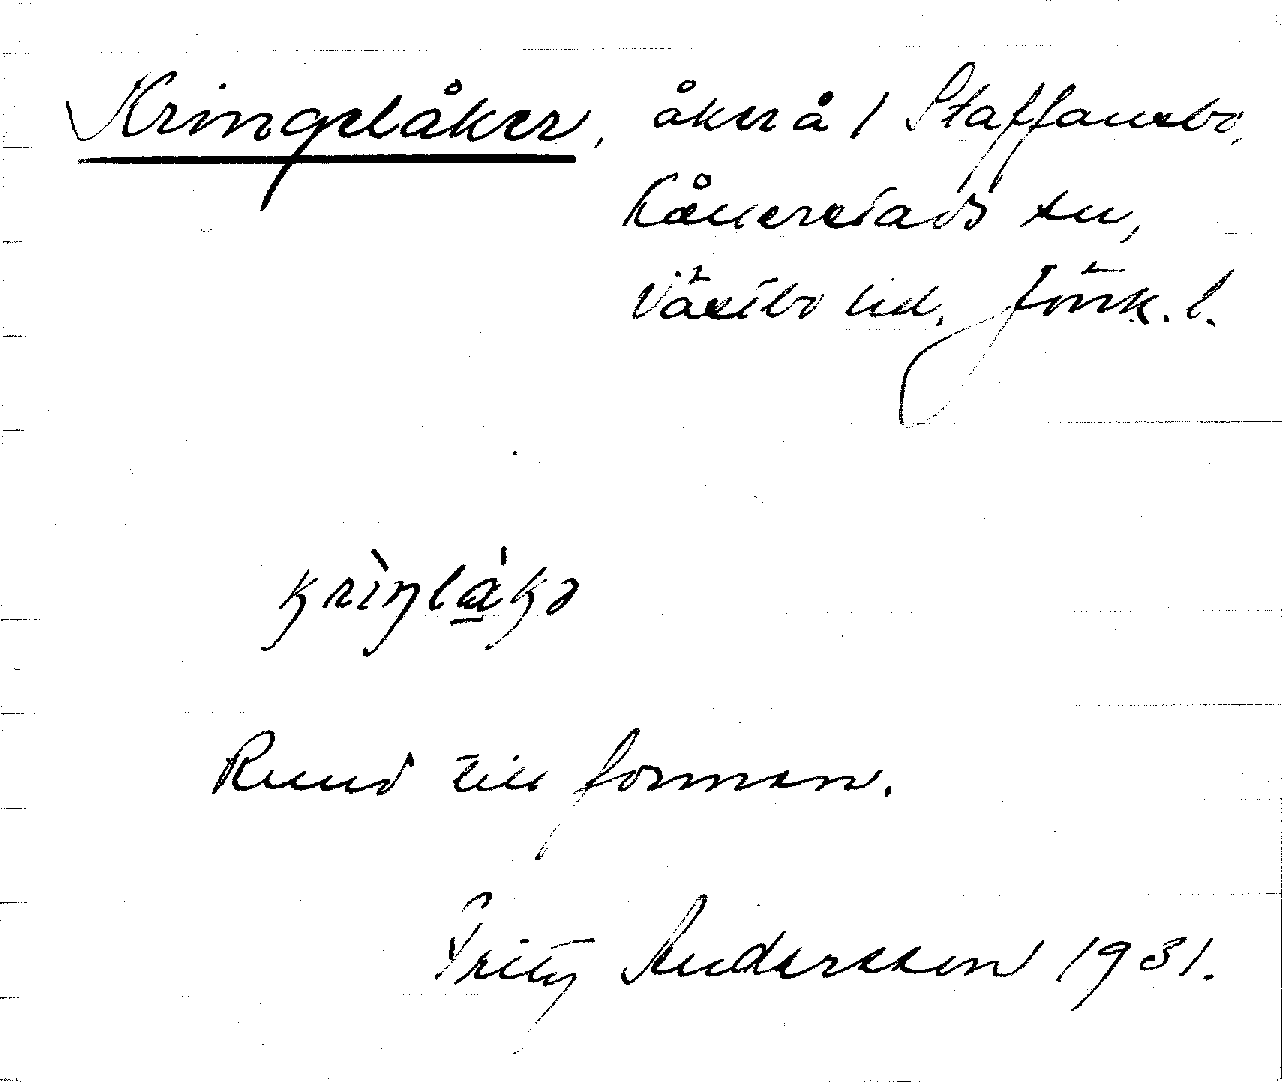 Kringelåker, åker å 1 Staffansbo,
Kåverstads sn,
Västbo hd, Jönk. l.
krìŋlá̱kə
Rund till formen.
Fritz Andersson 1931.